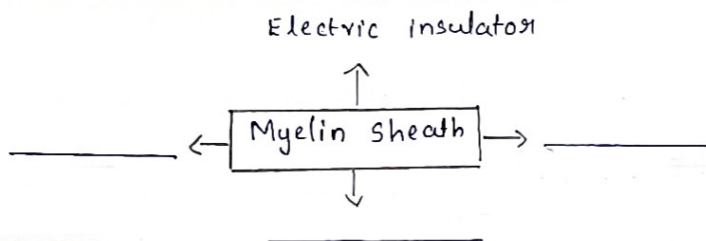 Electric insulator
Myelin Sheath